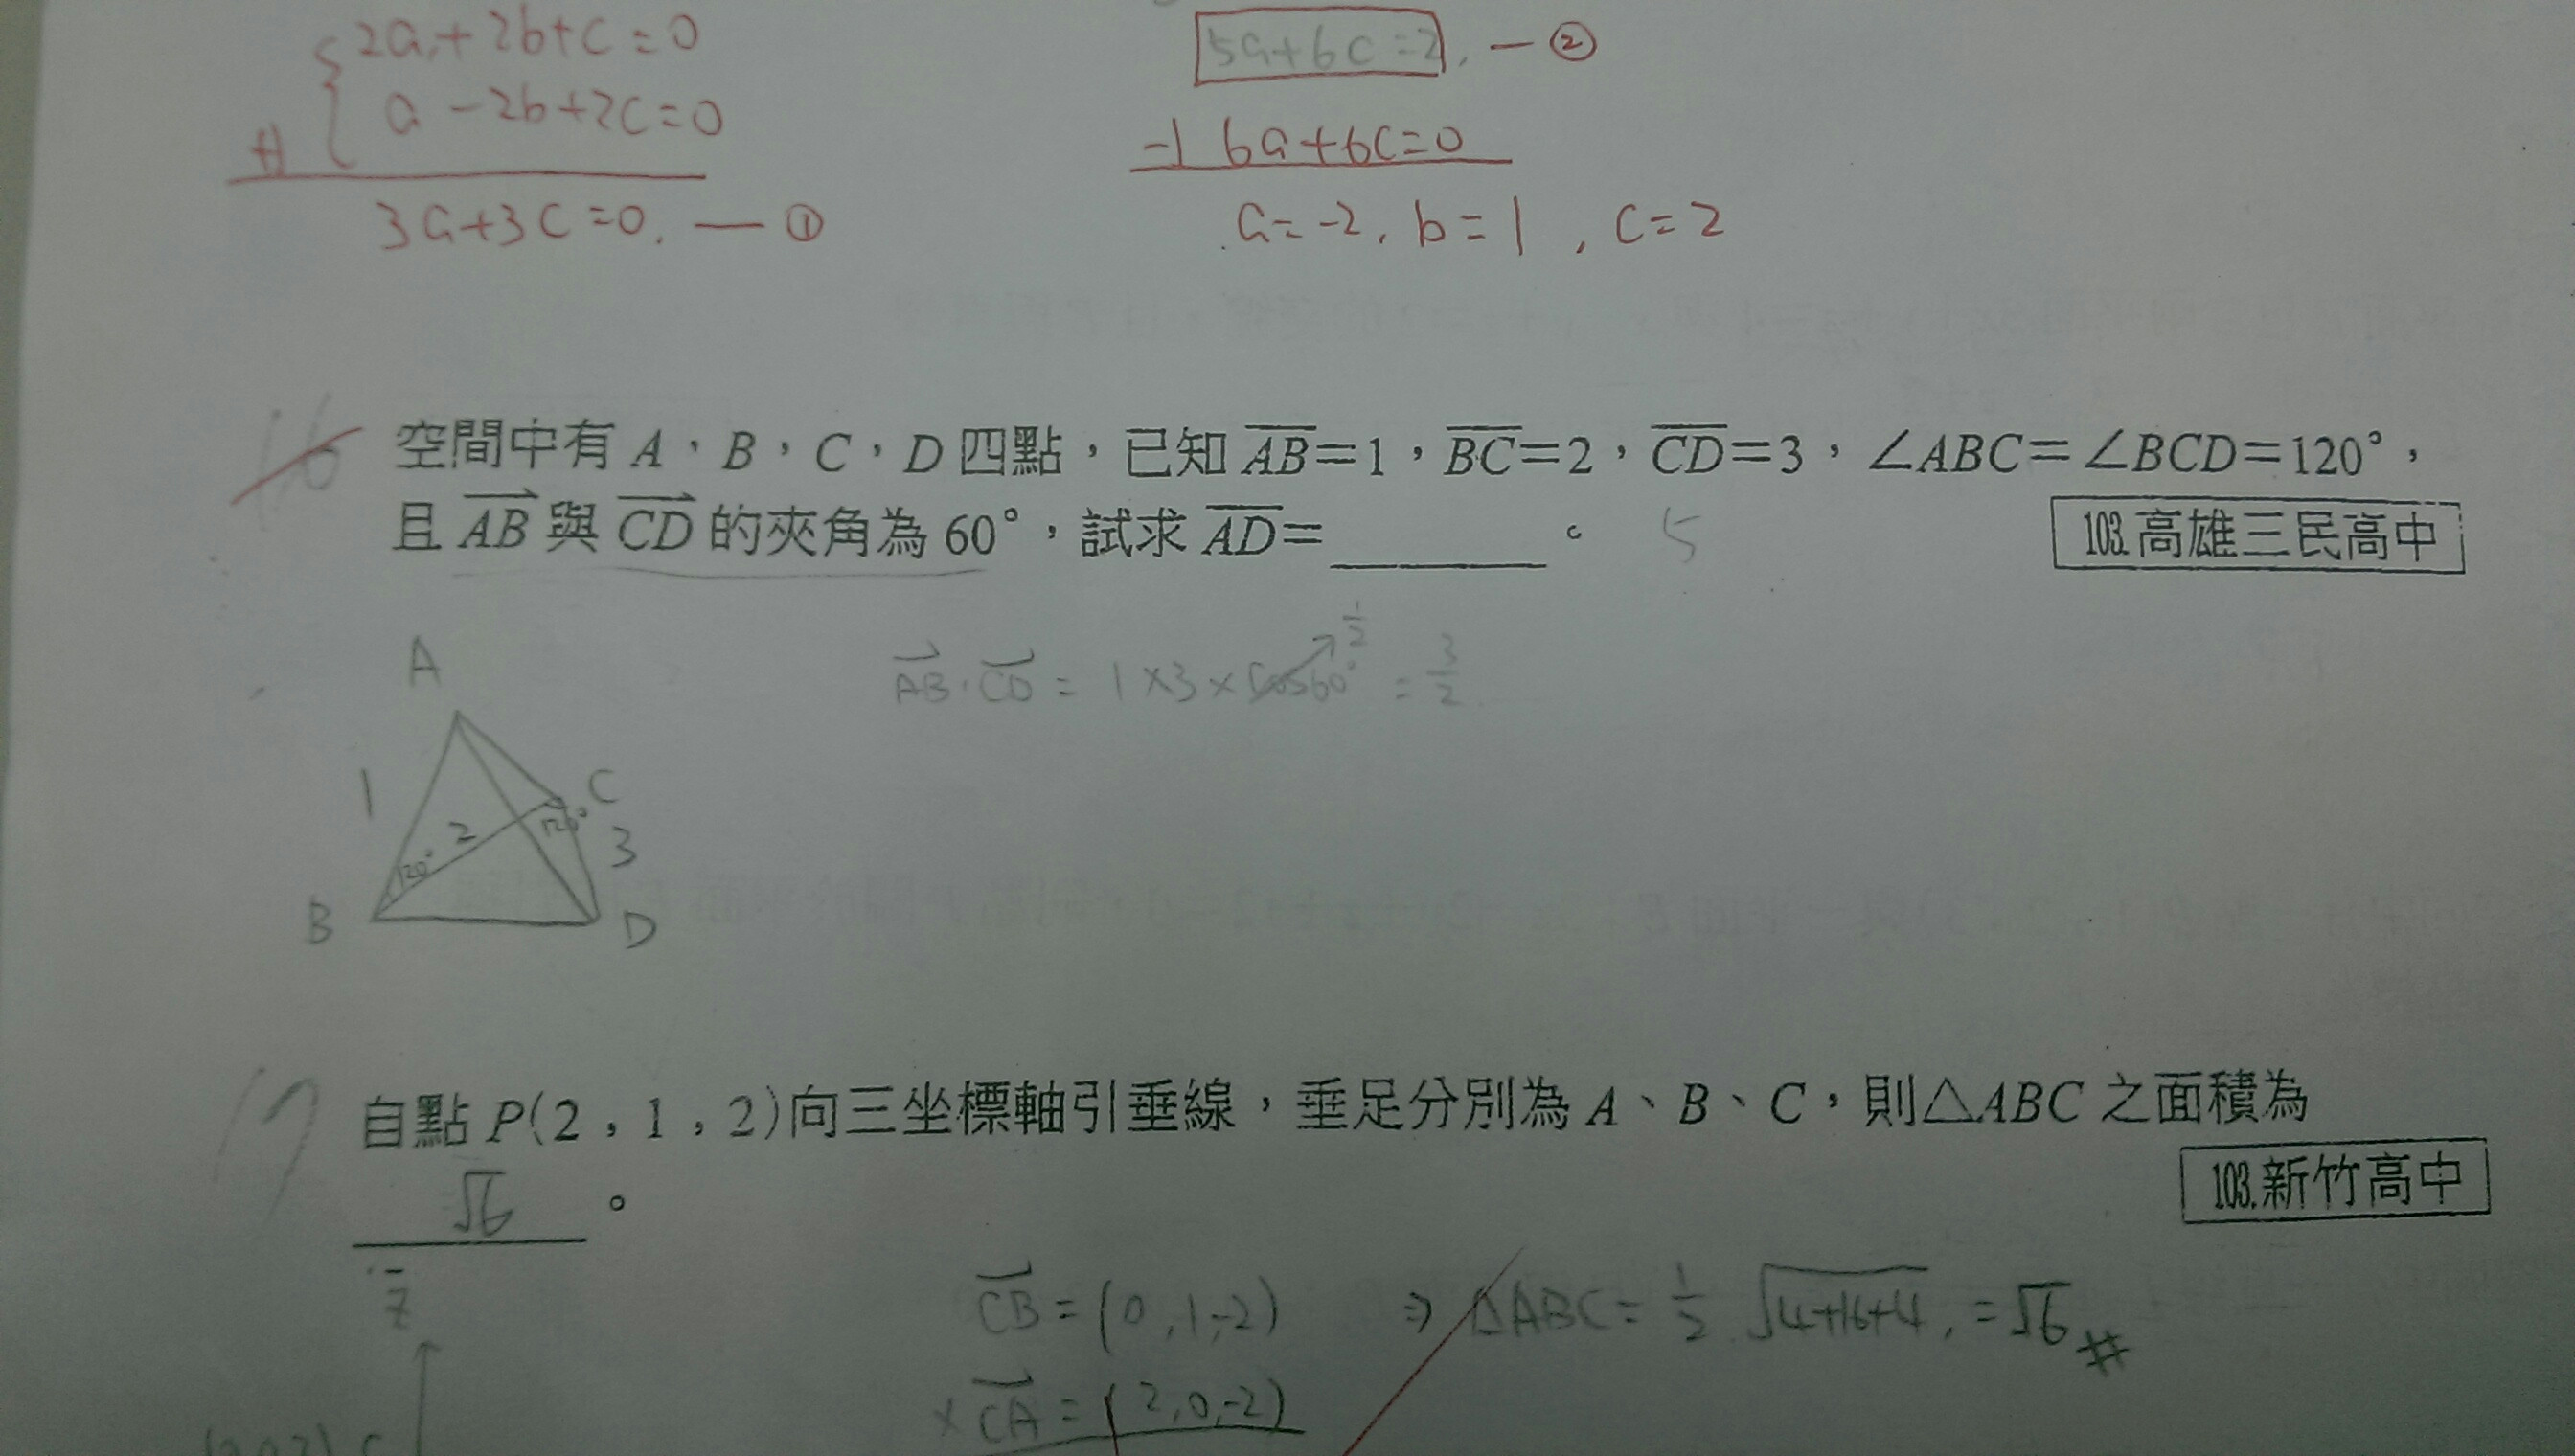 2a+2b+c=0
a-2b+2c=0
+)
3a+3c=0. — ①
5a+6c=2. — ②
-) 6a+6c=0
a=-2, b=1, c=2
16 空間中有 A，B，C，D 四點，已知 AB=1，BC=2，CD=3，∠ABC=∠BCD=120°，
且 AB 與 CD 的夾角為 60°，試求 AD=______。 5
103.高雄三民高中
AB·CD = 1×3×cos60° 1/2 = 3/2
A
1
2
C
120°
120°
3
B
D
17 自點 P(2，1，2)向三坐標軸引垂線，垂足分別為 A、B、C，則△ABC 之面積為
√6 。
103.新竹高中
z
CB = (0,1,-2) ⇒ △ABC = 1/2 √4+16+4 = √6 #
× CA = (2,0,-2)